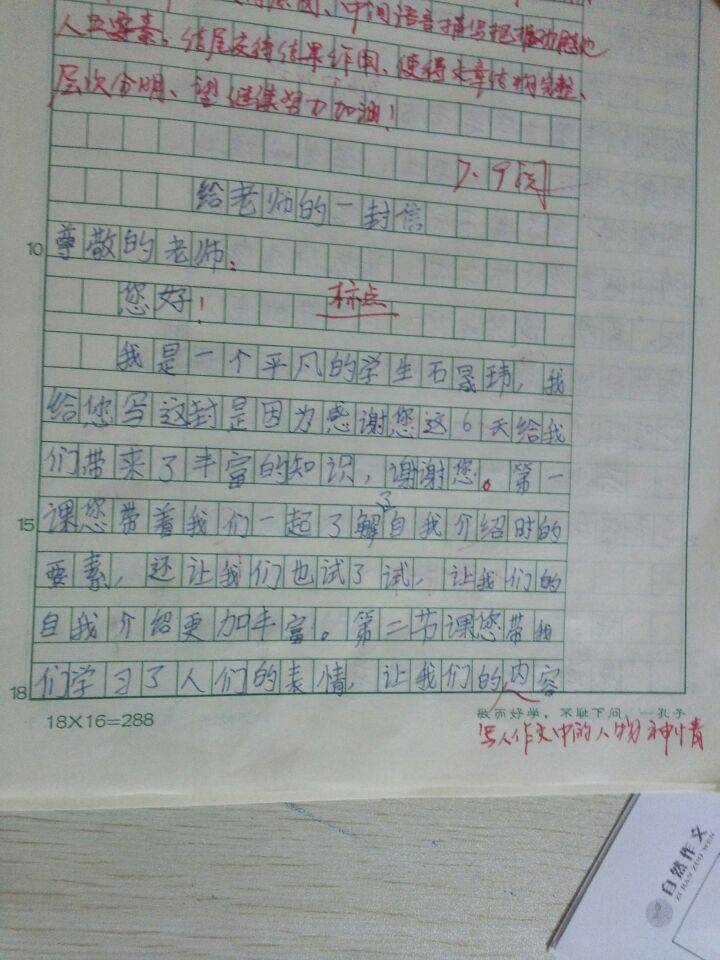 中间语言描写把握
人五要素。结尾交待结果作用、使得文章结构完整、
层次分明、望继续努力加油！
7.9阅
给老师的一封信
10 尊敬的老师：
您好！ 标点
我是一个平凡的学生石晟玮，我
给您写这封是因为感谢您这6天给我
们带来了丰富的知识，谢谢您。第一
了
15 课您带着我们一起了解自我介绍时的
要素，还让我们也试了试，让我们的
自我介绍更加丰富。第二节课您带我
18 们学习了人们的表情，让我们的内容
18X16=288 敏而好学，不耻下问。—孔子
写人作文中的人物神情
自然作文
ZI RAN ZUO WEN